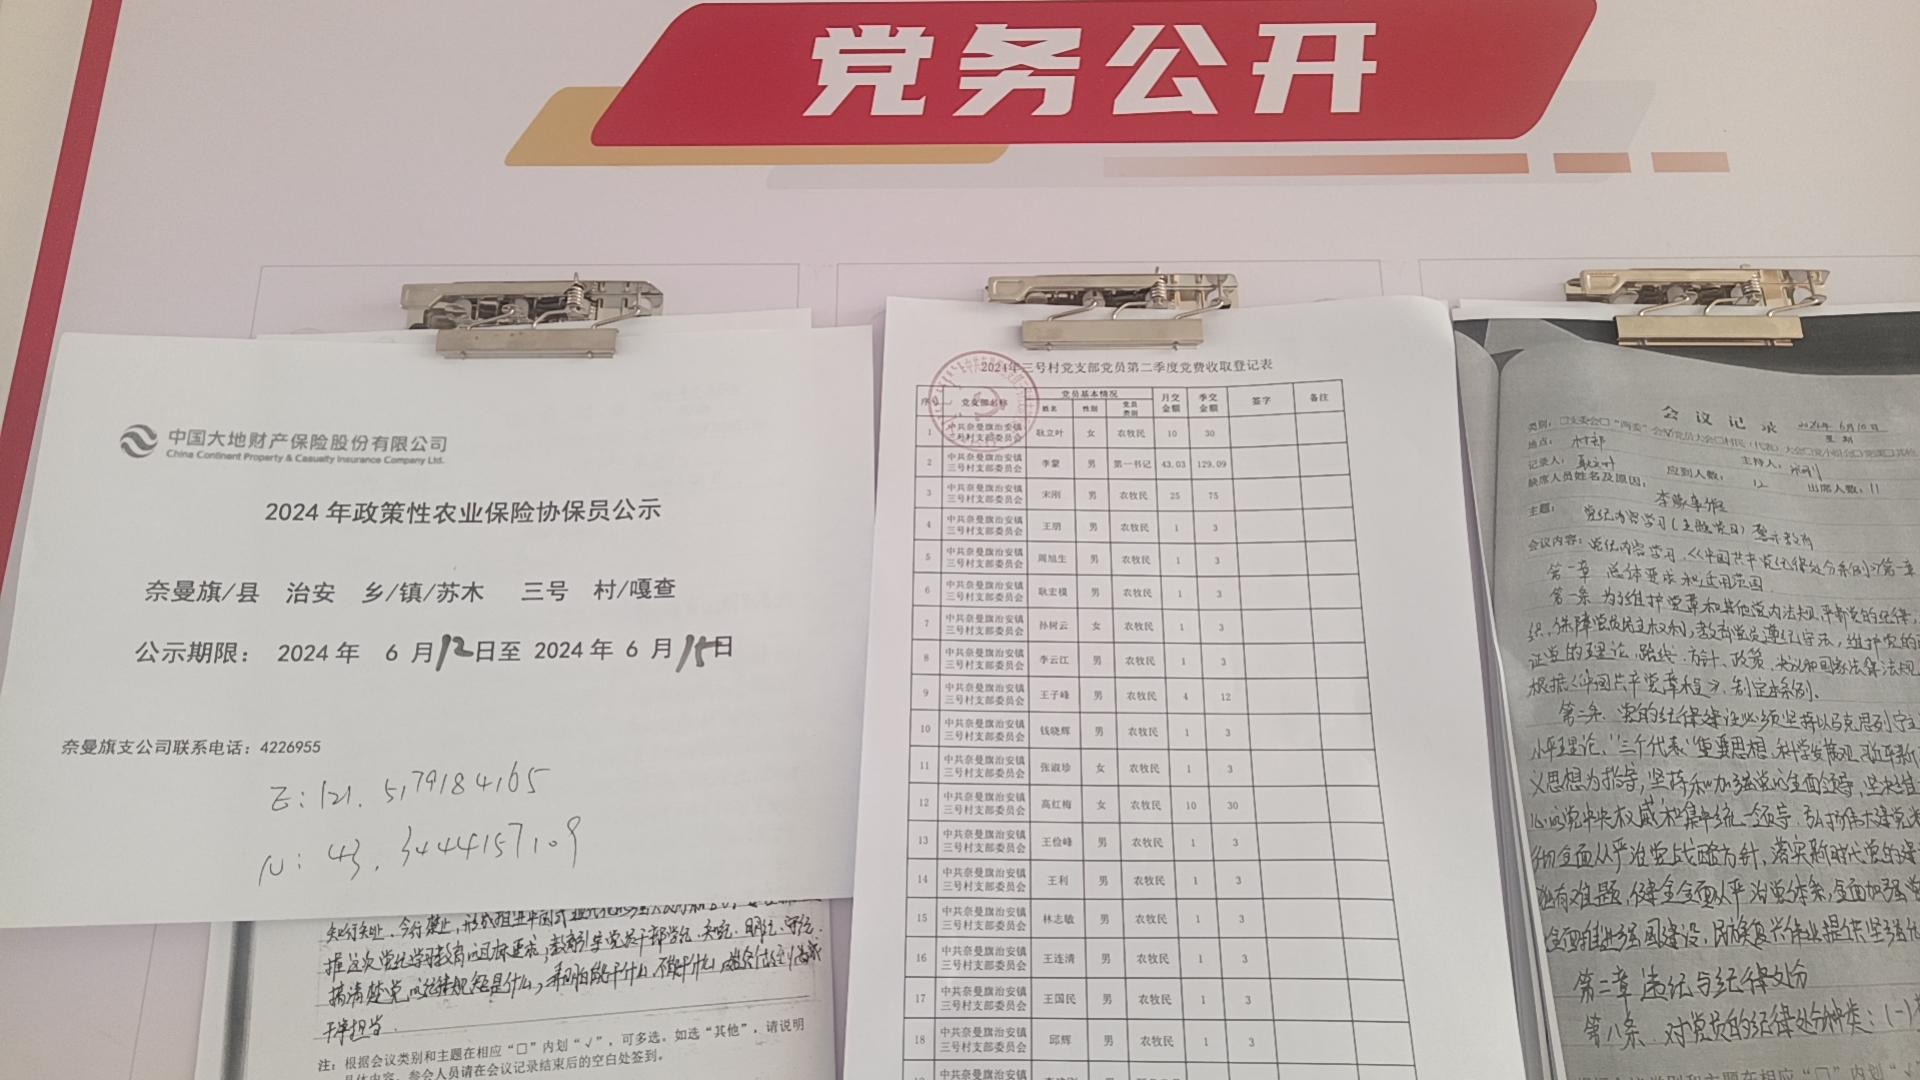 党务公开
中国大地财产保险股份有限公司
China Continent Property & Casualty Insurance Company Ltd.
2024 年政策性农业保险协保员公示
奈曼旗/县 治安 乡/镇/苏木 三号 村/嘎查
公示期限： 2024 年 6 月12日至 2024 年 6 月15日
奈曼旗支公司联系电话：4226955
E: 121.5179184165
N: 43.3444157109
搞清楚党的纪律规矩是什么，弄明白能干什么、不能干什么
干净担当.
注：根据会议类别和主题在相应“□”内划“√”，可多选。如选“其他”，请说明
具体内容。参会人员请在会议记录结束后的空白处签到。
2024年三号村党支部党员第二季度党费收取登记表
序号 党支部名称 党员基本情况 月交金额 季交金额 签字 备注
姓名 性别 党员类别
1 中共奈曼旗治安镇三号村支部委员会 耿立叶 女 农牧民 10 30
2 中共奈曼旗治安镇三号村支部委员会 李蒙 男 第一书记 43.03 129.09
3 中共奈曼旗治安镇三号村支部委员会 宋刚 男 农牧民 25 75
4 中共奈曼旗治安镇三号村支部委员会 王朋 男 农牧民 1 3
5 中共奈曼旗治安镇三号村支部委员会 周旭生 男 农牧民 1 3
6 中共奈曼旗治安镇三号村支部委员会 耿宏模 男 农牧民 1 3
7 中共奈曼旗治安镇三号村支部委员会 孙树云 女 农牧民 1 3
8 中共奈曼旗治安镇三号村支部委员会 李云江 男 农牧民 1 3
9 中共奈曼旗治安镇三号村支部委员会 王子峰 男 农牧民 4 12
10 中共奈曼旗治安镇三号村支部委员会 钱晓辉 男 农牧民 1 3
11 中共奈曼旗治安镇三号村支部委员会 张淑珍 女 农牧民 1 3
12 中共奈曼旗治安镇三号村支部委员会 高红梅 女 农牧民 10 30
13 中共奈曼旗治安镇三号村支部委员会 王俭峰 男 农牧民 1 3
14 中共奈曼旗治安镇三号村支部委员会 王利 男 农牧民 1 3
15 中共奈曼旗治安镇三号村支部委员会 林志敏 男 农牧民 1 3
16 中共奈曼旗治安镇三号村支部委员会 王连清 男 农牧民 1 3
17 中共奈曼旗治安镇三号村支部委员会 王国民 男 农牧民 1 3
18 中共奈曼旗治安镇三号村支部委员会 邱辉 男 农牧民 1 3
中共奈曼旗治安镇
会议记录
2024年 6月10日
星期
地点： 村部 主持人：宋刚
记录人：耿立叶 应到人数： 12 出席人数：11
缺席人员姓名及原因：
主题： 党纪内容学习（主题党日）警示教育
会议内容：党纪内容学习《中国共产党纪律处分条例》第一章
第一章 总体要求和适用范围
第一条 为了维护党章和其他党内法规，严肃党的纪律，
织，保障党员民主权利，教育党员遵纪守法，维护党的
证党的理论、路线、方针、政策、决议和国家法律法规
根据《中国共产党章程》，制定本条例.
第二条 党的纪律建设必须坚持以马克思列宁主
小平理论、“三个代表”重要思想、科学发展观、习近平新
义思想为指导，坚持和加强党的全面领导，坚决维
彻全面从严治党战略方针，落实新时代党的
独有难题，健全全面从严治党体系，全面加强
全面推进强国建设、民族复兴伟业提供坚强
第二章 违纪与纪律处分
第八条 对党员的纪律处分种类：(一)